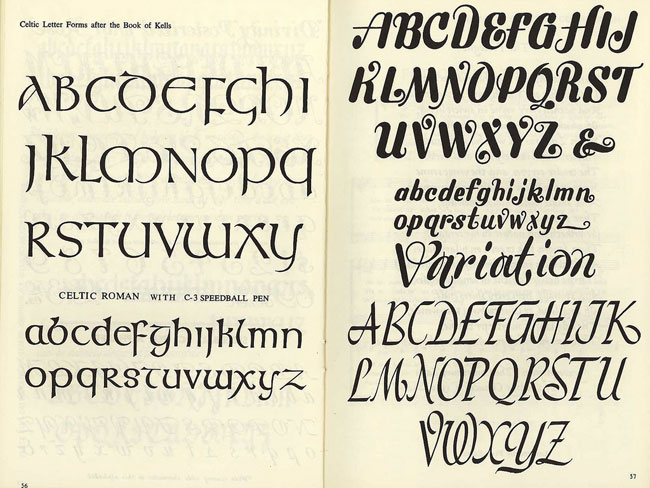 Celtic Letter Forms after the Book of Kells
ABCDEFGHI
JKLMNOPQ
RSTUVWXY
CELTIC ROMAN WITH C-3 SPEEDBALL PEN
abcdefghijklmn
opqrstuvwxyz
56
ABCDEFGHIJ
KLMNOPQRST
UVWXYZ &
abcdefghijklmn
opqrstuvwxyz
Variation
ABCDEFGHIJK
LMNOPQRSTU
VWXYZ
57